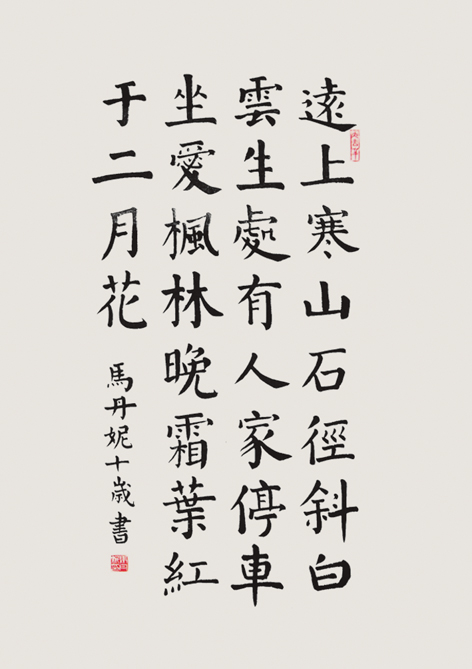 遠上寒山石徑斜白
雲生處有人家停車
坐愛楓林晚霜葉紅
于二月花
馬丹妮十歲書